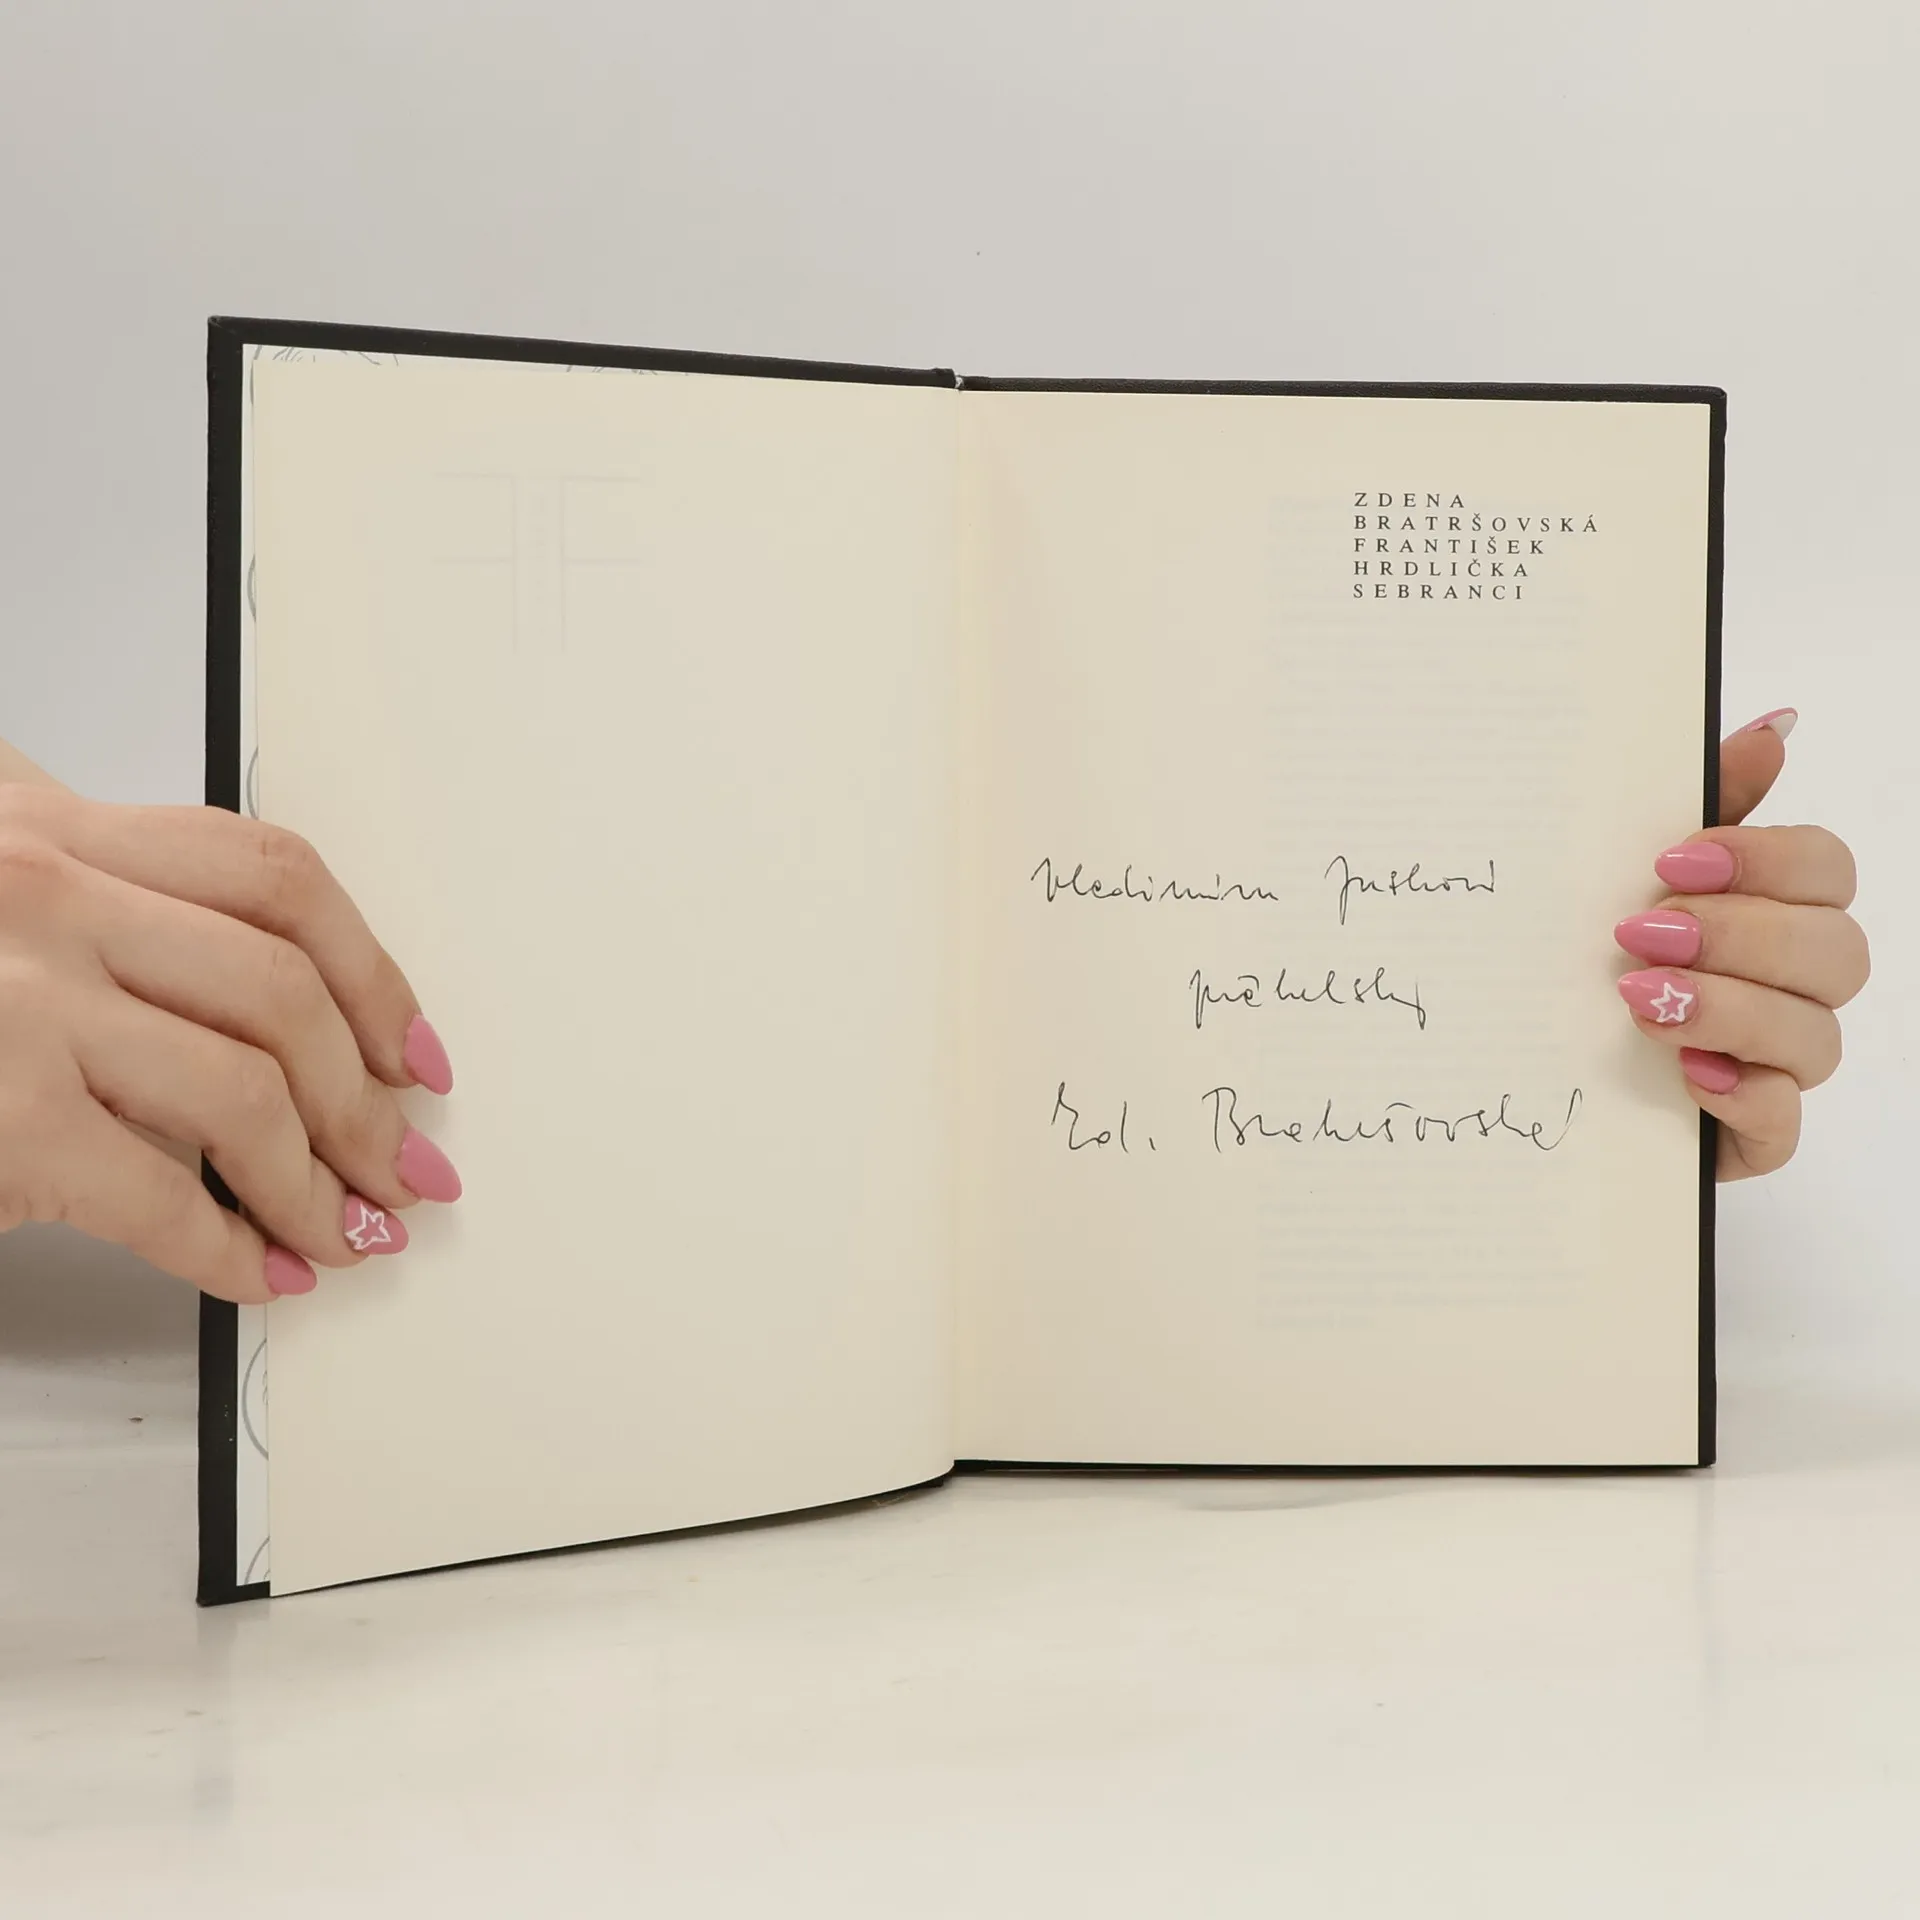 ZDENA
BRATRŠOVSKÁ
FRANTIŠEK
HRDLIČKA
SEBRANCI
Vladimíru Justovi
přátelsky
Zd. Bratršovská